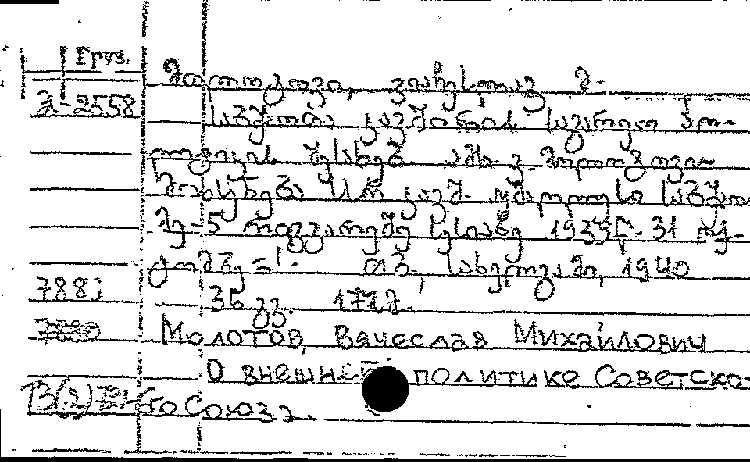 Груз.
მოლოტოვი, ვიაჩესლავ მ.
მ-2558 საბჭოთა კავშირის საგარეო პო-
ლიტიკის შესახებ. ამხ. ვ. მოლოტოვის
მოხსენება სსრ კავშ. უმაღლესი საბჭოს
მე-5 რიგგარეშე სესიაზე 1939წ. 31 ოქ-
ტომბ. თბ., სახელგამი, 1940
7881 36 გვ. 17
Молотов, Вячеслав Михайлович
О внешней политике Советско-
го Союза.